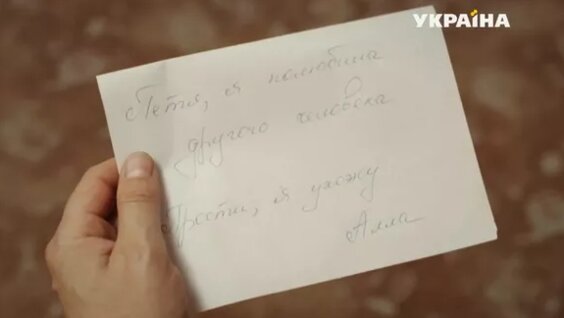 УКРАЇНА
Петя, я полюбила
другого человека
Прости, я ухожу
Алла